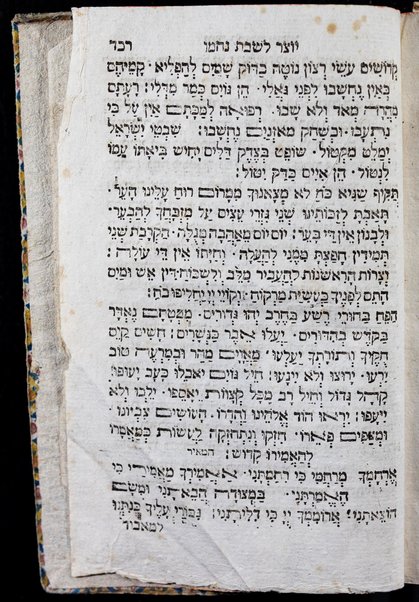 יוצר לשבת נחמו רכד
קדושים עושי רצון נוטה כדוק שמים להפליא קמיהם
כאין נחשבו לפני גאלי הן גוים כמר מדלי רעתם
מאד ולא שבו רפואה למכתם אין על כי
נתעבו ובשחק מאזנים נחשבו שבטי ישראל
ימלט מקטול שופט בצדק דלים יחיש ביאתו עמו
לנטול הן איים כדק יטול
תקיף שגיא כח לא מצאנוך ממרום רוח עלינו הערי
תאבת לזכותינו שני גזרי עצים על מזבחך להבער
ולבנון אין די בער יום יום מאהבה סגולה הקרבת שני
תמידין חפצת ממני להעלה וחיתו אין די עולה
יצרות הראשנות להעביר מלב ולשכוח דין אש ומים
התם לפניך כעשית מרקוח וקווי יי יחליפו כח
הפח בחורי רשע בחרב יהו גדורים מבטחם נאדר
בקדש בהדורים יעלו אבר כנשרים חשים קים
חקיך ותורתך יעלעו מאוים מהר ובמרעה טוב
ירעו ירוצו ולא ייגעו חיל גוים יאכלו כעב יעופו
קהל גדול וחיל רב מכל קצוות יאספו ילכו ולא
ייעפו יראו הוד אלהינו והדרו העושים צביונו
ומצפים פארו חזקו ונתחזקה לעשות כמאמרו
להאמירו קדוש המאיר
ארחמך מרחמי כי רחמתני אאמירך מאמירי כי
האמרתני במצודה הבאתני ומשם
הוצאתני ארוממך יי כי דליתני גבורי עליך בטחו
למאביד